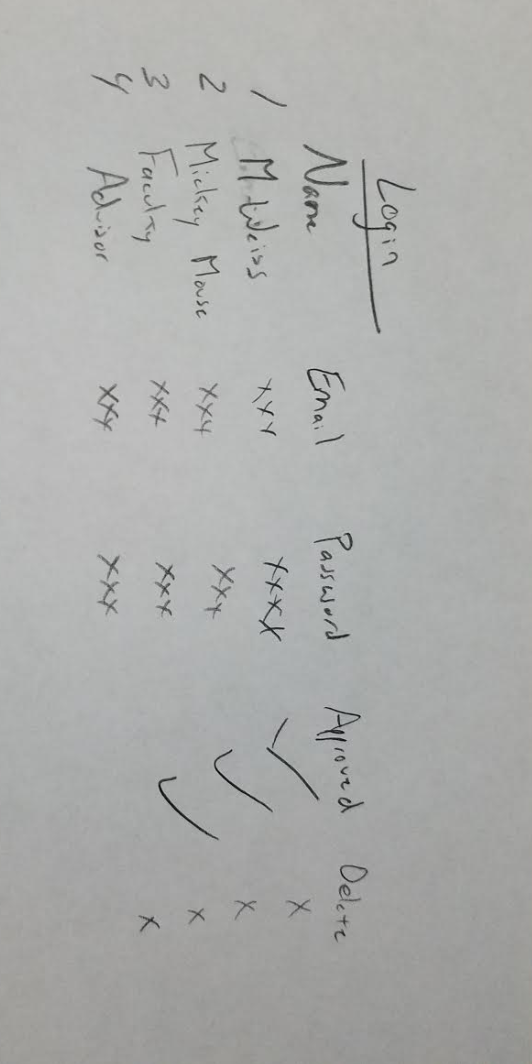 Login
Name Email Password Approved Delete
1 M Weiss xxx xxxx ✓ x
2 Mickey Mouse xxx xxx ✓ x
3 Faculty xxx xxx ✓ x
4 Advisor xxx xxx x